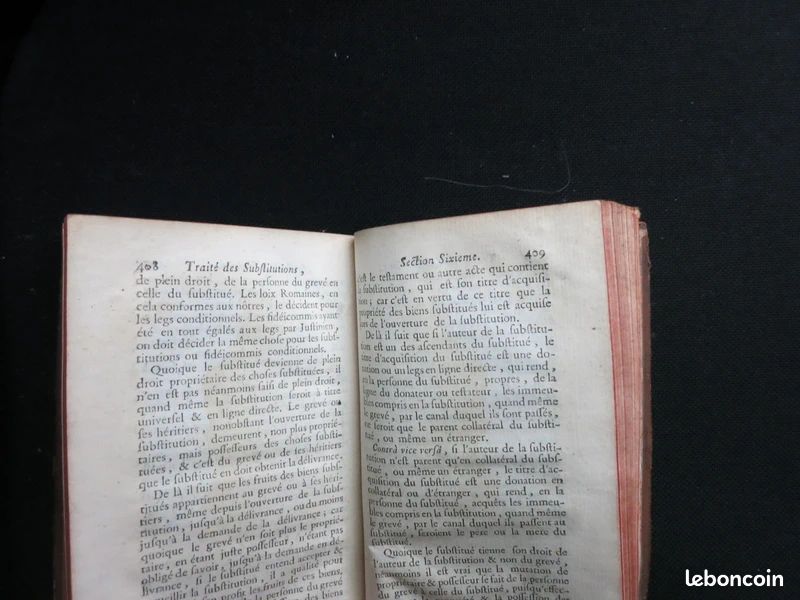 408 Traité des Substitutions,
de plein droit, de la personne du grevé en
celle du substitué. Les loix Romaines, en
cela conformes aux nôtres, le décident pour
les legs conditionnels. Les fidéicommis ayant
été en tout égalés aux legs par Justinien,
on doit décider la même chose pour les subs-
titutions ou fidéicommis conditionnels.
Quoique le substitué devienne de plein
droit propriétaire des choses substituées, il
n'en est pas néanmoins saisi de plein droit,
quand même la substitution seroit à titre
universel & en ligne directe. Le grevé ou
ses héritiers, nonobstant l'ouverture de la
substitution, demeurent, non plus proprié-
taires, mais possesseurs des choses substi-
tuées, & c'est du grevé ou de ses héritiers
que le substitué en doit obtenir la délivrance.
De là il suit que les fruits des biens subs-
titués appartiennent au grevé ou à ses héri-
tiers, même depuis l'ouverture de la subs-
titution, jusqu'à la délivrance, ou du moins
jusqu'à la demande de la délivrance; car
quoique le grevé n'en soit plus le proprié-
taire, en étant juste possesseur, n'étant pas
obligé de savoir, jusqu'à la demande en dé-
livrance, si le substitué entend accepter &
recueillir la substitution, il a qualité pour
percevoir les fruits de ces biens,
Section Sixieme. 409
c'est le testament ou autre acte qui contient
la substitution, qui est son titre d'acquisi-
tion; car c'est en vertu de ce titre que la
propriété des biens substitués lui est acquise
lors de l'ouverture de la substitution.
De là il suit que si l'auteur de la substitu-
tion est un des ascendants du substitué, le
titre d'acquisition du substitué est une do-
nation ou un legs en ligne directe, qui rend,
en la personne du substitué, propres, de la
ligne du donateur ou testateur, les immeu-
bles compris en la substitution, quand même
le grevé, par le canal duquel ils sont passés,
ne seroit que le parent collatéral du substi-
tué, ou même un étranger.
Contrà vice versâ, si l'auteur de la substi-
tution n'est parent qu'en collatéral du subs-
titué, ou même un étranger, le titre d'ac-
quisition du substitué est une donation en
collatéral ou d'étranger, qui rend, en la
personne du substitué, acquêts les immeu-
bles compris en la substitution, quand même
le grevé, par le canal duquel ils passent au
substitué, seroient le pere ou la mere du
substitué.
Quoique le substitué tienne son droit de
l'auteur de la substitution & non du grevé,
néanmoins il est vrai que la mutation de
propriétaire & possesseur se fait de la personne
du grevé à celle du substitué, puisqu'effec-
possession des
leboncoin